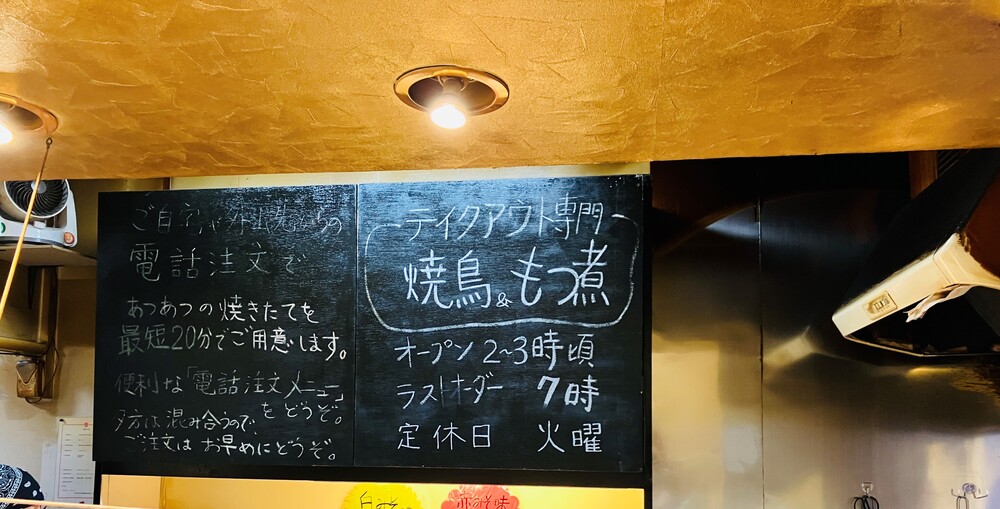 ご自宅や外出先からの
電話注文で
あつあつの焼きたてを
最短20分でご用意します。
便利な「電話注文メニュー」
をどうぞ。
夕方は混み合うので、
ご注文はお早めにどうぞ。
テイクアウト専門
焼鳥&もつ煮
オープン 2~3時頃
ラストオーダー 7時
定休日 火曜
白みそ
赤みそ味